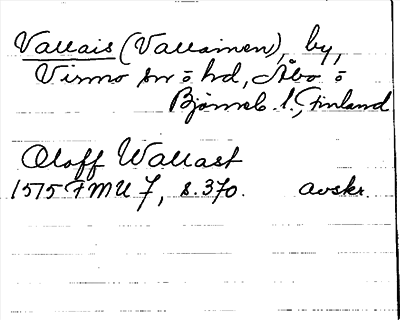 Vallais (Vallainen), by,
Virmo sn o hd, Åbo o
Björneb. l., Finland
Oloff Wallast
1515 FMU 7, s. 370. avskr.